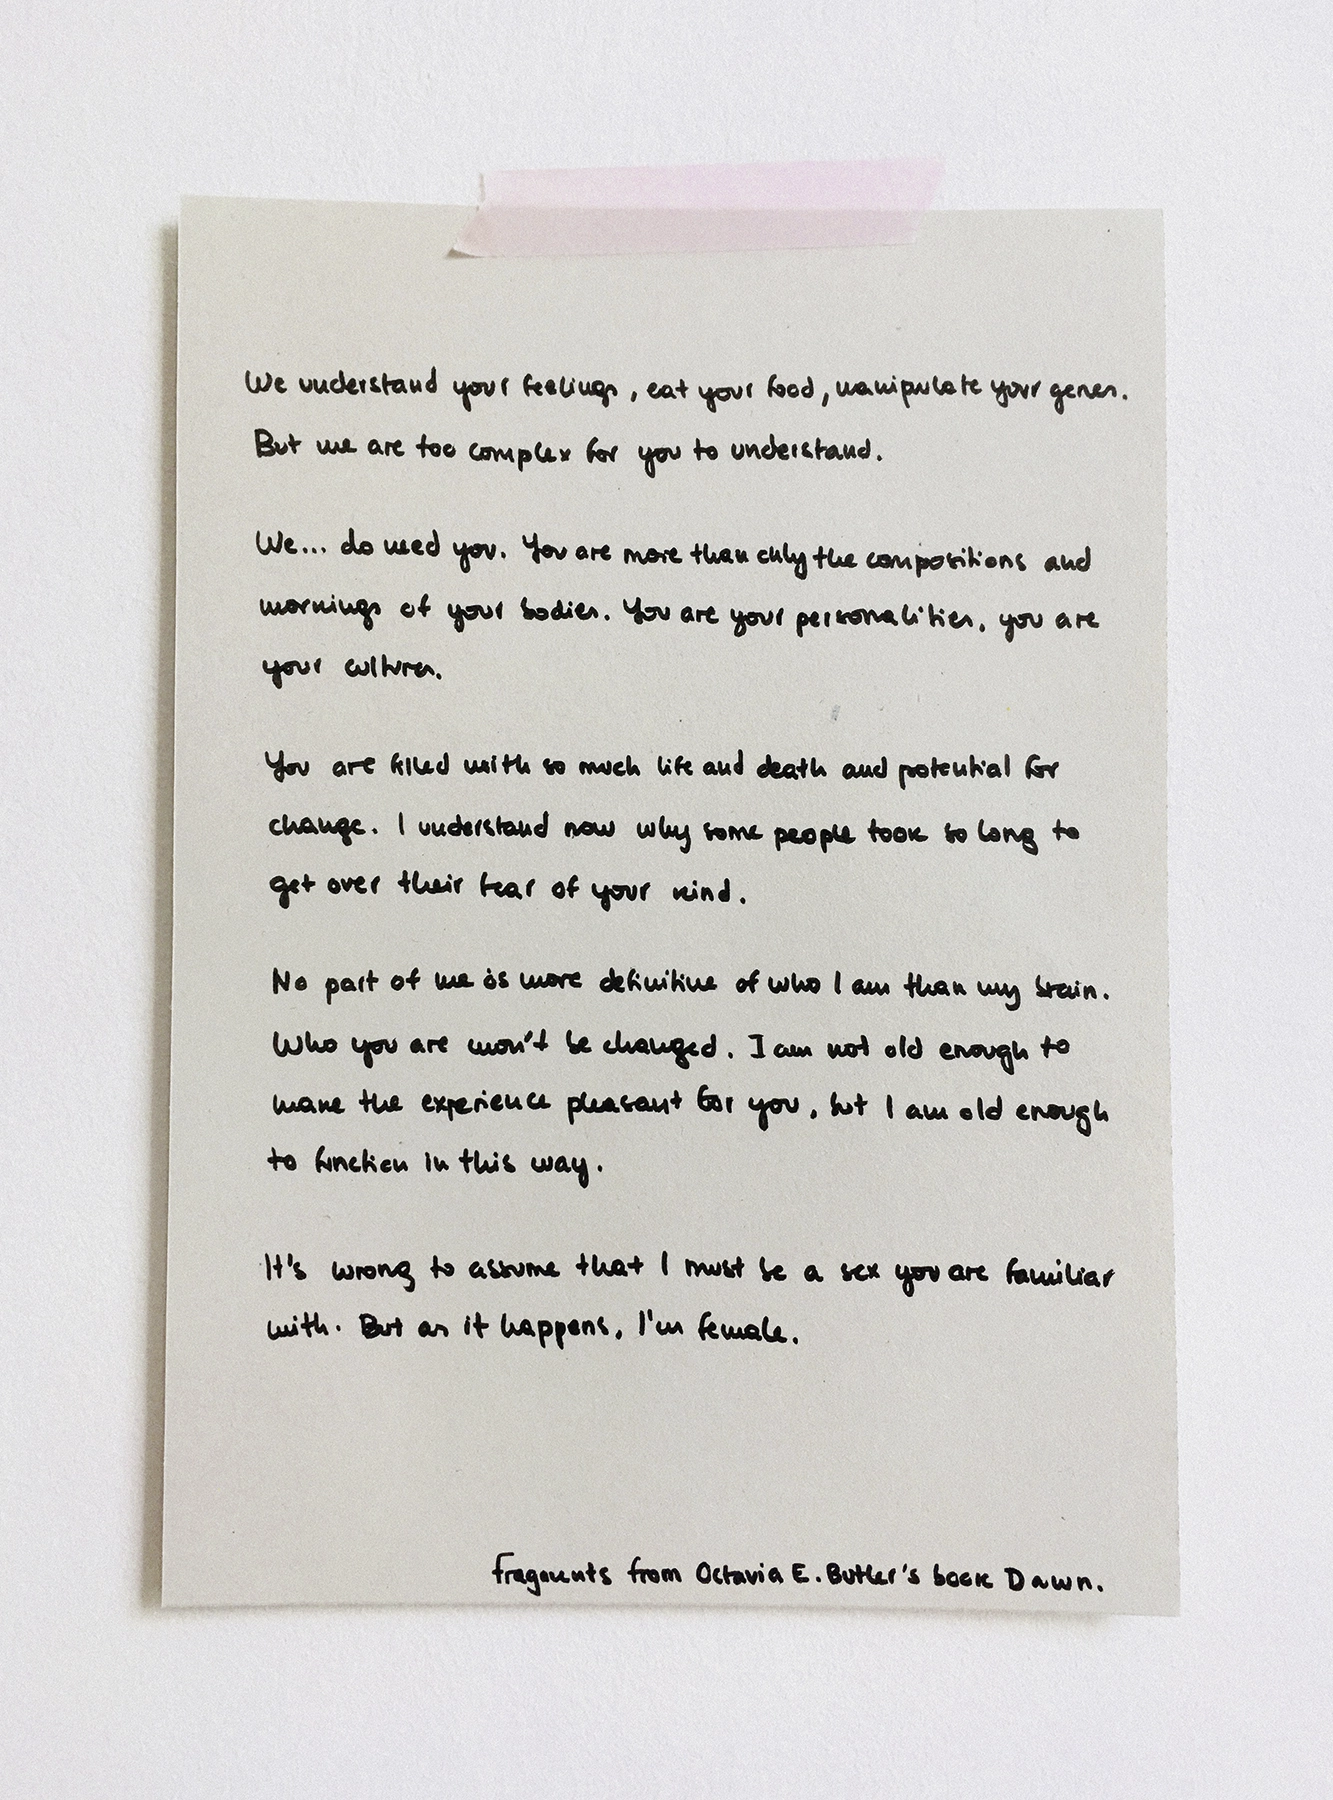 We understand your feelings, eat your food, manipulate your genes.
But we are too complex for you to understand.
We... do need you. You are more than only the compositions and
mornings of your bodies. You are your personalities, you are
your cultures.
You are filled with so much life and death and potential for
change. I understand now why some people took so long to
get over their fear of your kind.
No part of me is more definitive of who I am than my brain.
Who you are won't be changed. I am not old enough to
make the experience pleasant for you, but I am old enough
to function in this way.
It's wrong to assume that I must be a sex you are familiar
with. But as it happens, I'm female.
fragments from Octavia E. Butler's book Dawn.